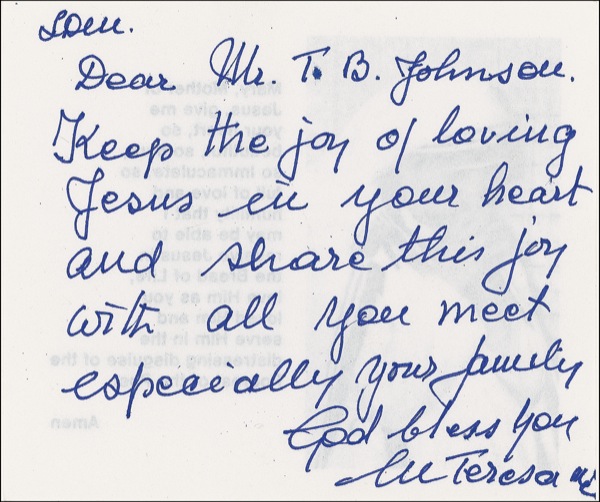 LDM.
Dear Mr. T. B. Johnson.
Keep the joy of loving
Jesus in your heart
and share this joy
with all you meet
especially your family
God bless you
M Teresa mc
Mary, Mother of
Jesus, give me
your heart, so
beautiful, so
so immaculate, so
full of love and
humility that I
may be able to
Jesus in
the Bread of Life,
love Him as you
and
serve Him in the
distressing disguise of the
Amen